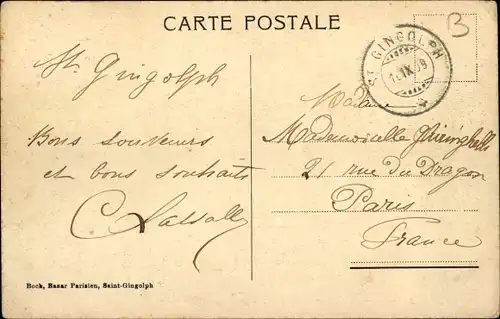 CARTE POSTALE
B
ST GINGOLPH
St. Gingolph
Bons souvenirs
et bons souhaits
Madame
Mademoiselle
21 rue du Dragon
Paris
France
Bock, Bazar Parisien, Saint-Gingolph